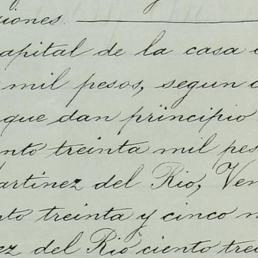 iones.
capital de la casa
mil pesos, segun
que dan principio
nto treinta mil pes
artinez del Rio, Ven
nto treinta y cinco m
ez del Rio ciento trei